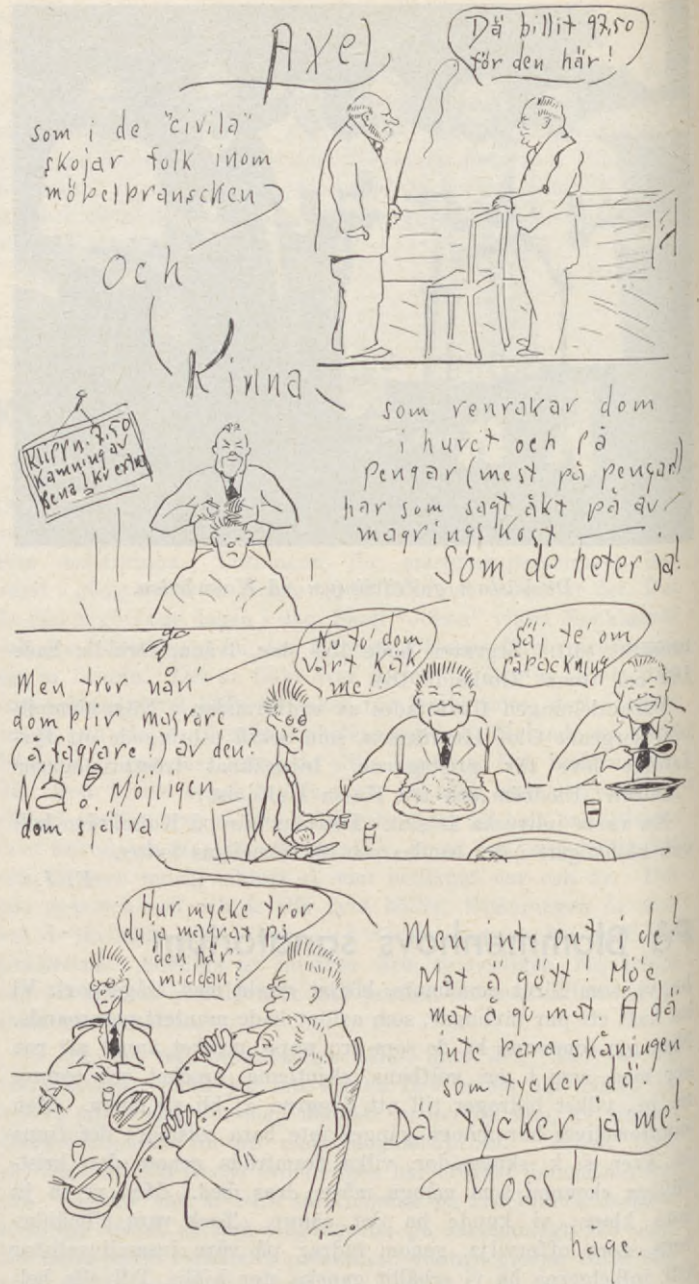 Axel
Dä billit 97,50
för den här!
som i de "civila"
skojar folk inom
möbelbranschen
Och
Kinna
Klippn. 7.50
Kamning av
bena 1 kr extra
som renrakar dom
i huvet och på
pengar (mest på pengar!)
har som sagt åkt på av-
magringskost
Som de heter ja!
Nu to' dom
vårt käk
me!!
Säj te' om
påbackning
Men tror nån'
dom blir magrare
(å fagrare!) av den?
Nä! Möjligen
dom själva!
Hur mycke tror
du ja magrat på
den här
middan?
Men inte ont i de!
Mat ä gött! Möe
mat å go mat. Å dä
inte bara skåningen
som tycker dä.
Dä tycker ja me!
Moss!!
håge.